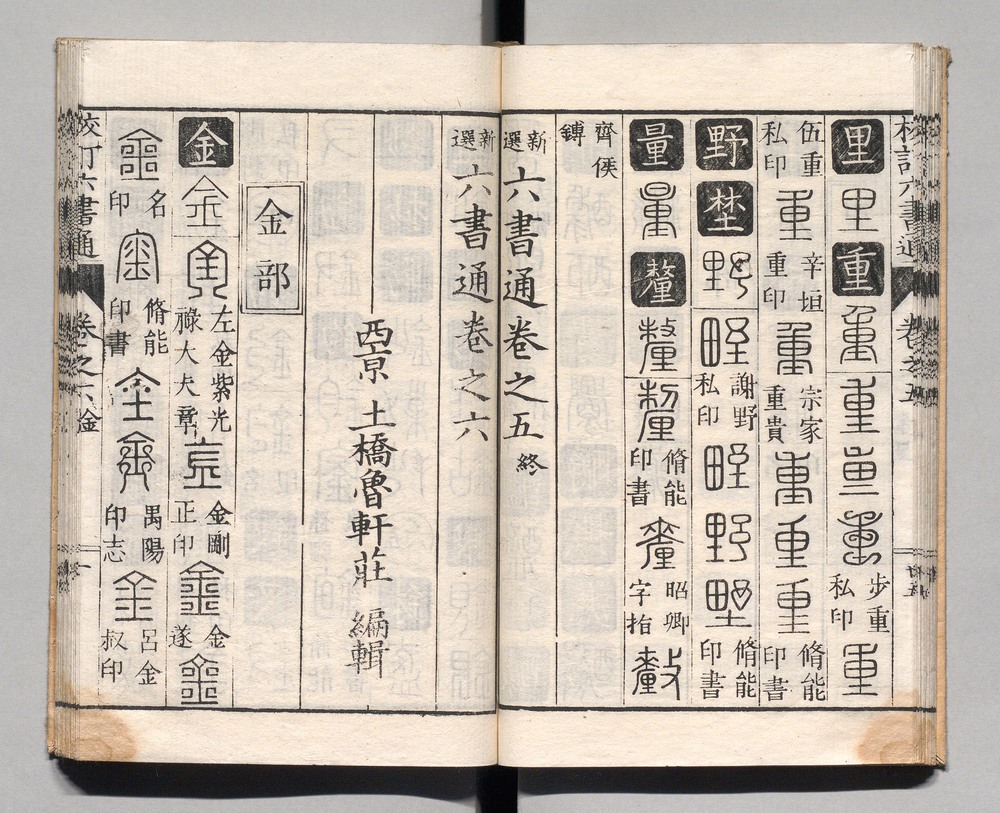 校訂六書通 卷之五
里 里 重 重 重 重 重 步重私印 重
伍重私印 重 辛垣重印 重 宗家重貴 重 重 重 脩能印書
野 埜 野 野 謝野私印 野 野 野 脩能印書
量 量 釐 釐 釐 脩能印書 釐 昭卿字指 釐
齊侯鎛
新選六書通卷之五終
新選六書通卷之六
西京 土橋魯軒莊 編輯
金部
金 金 金 左金紫光祿大夫章 金 金剛正印 金 金遂 金
金 名印 金 脩能印書 金 金 禺陽印志 金 呂金叔印
校訂六書通 卷之六 金 一